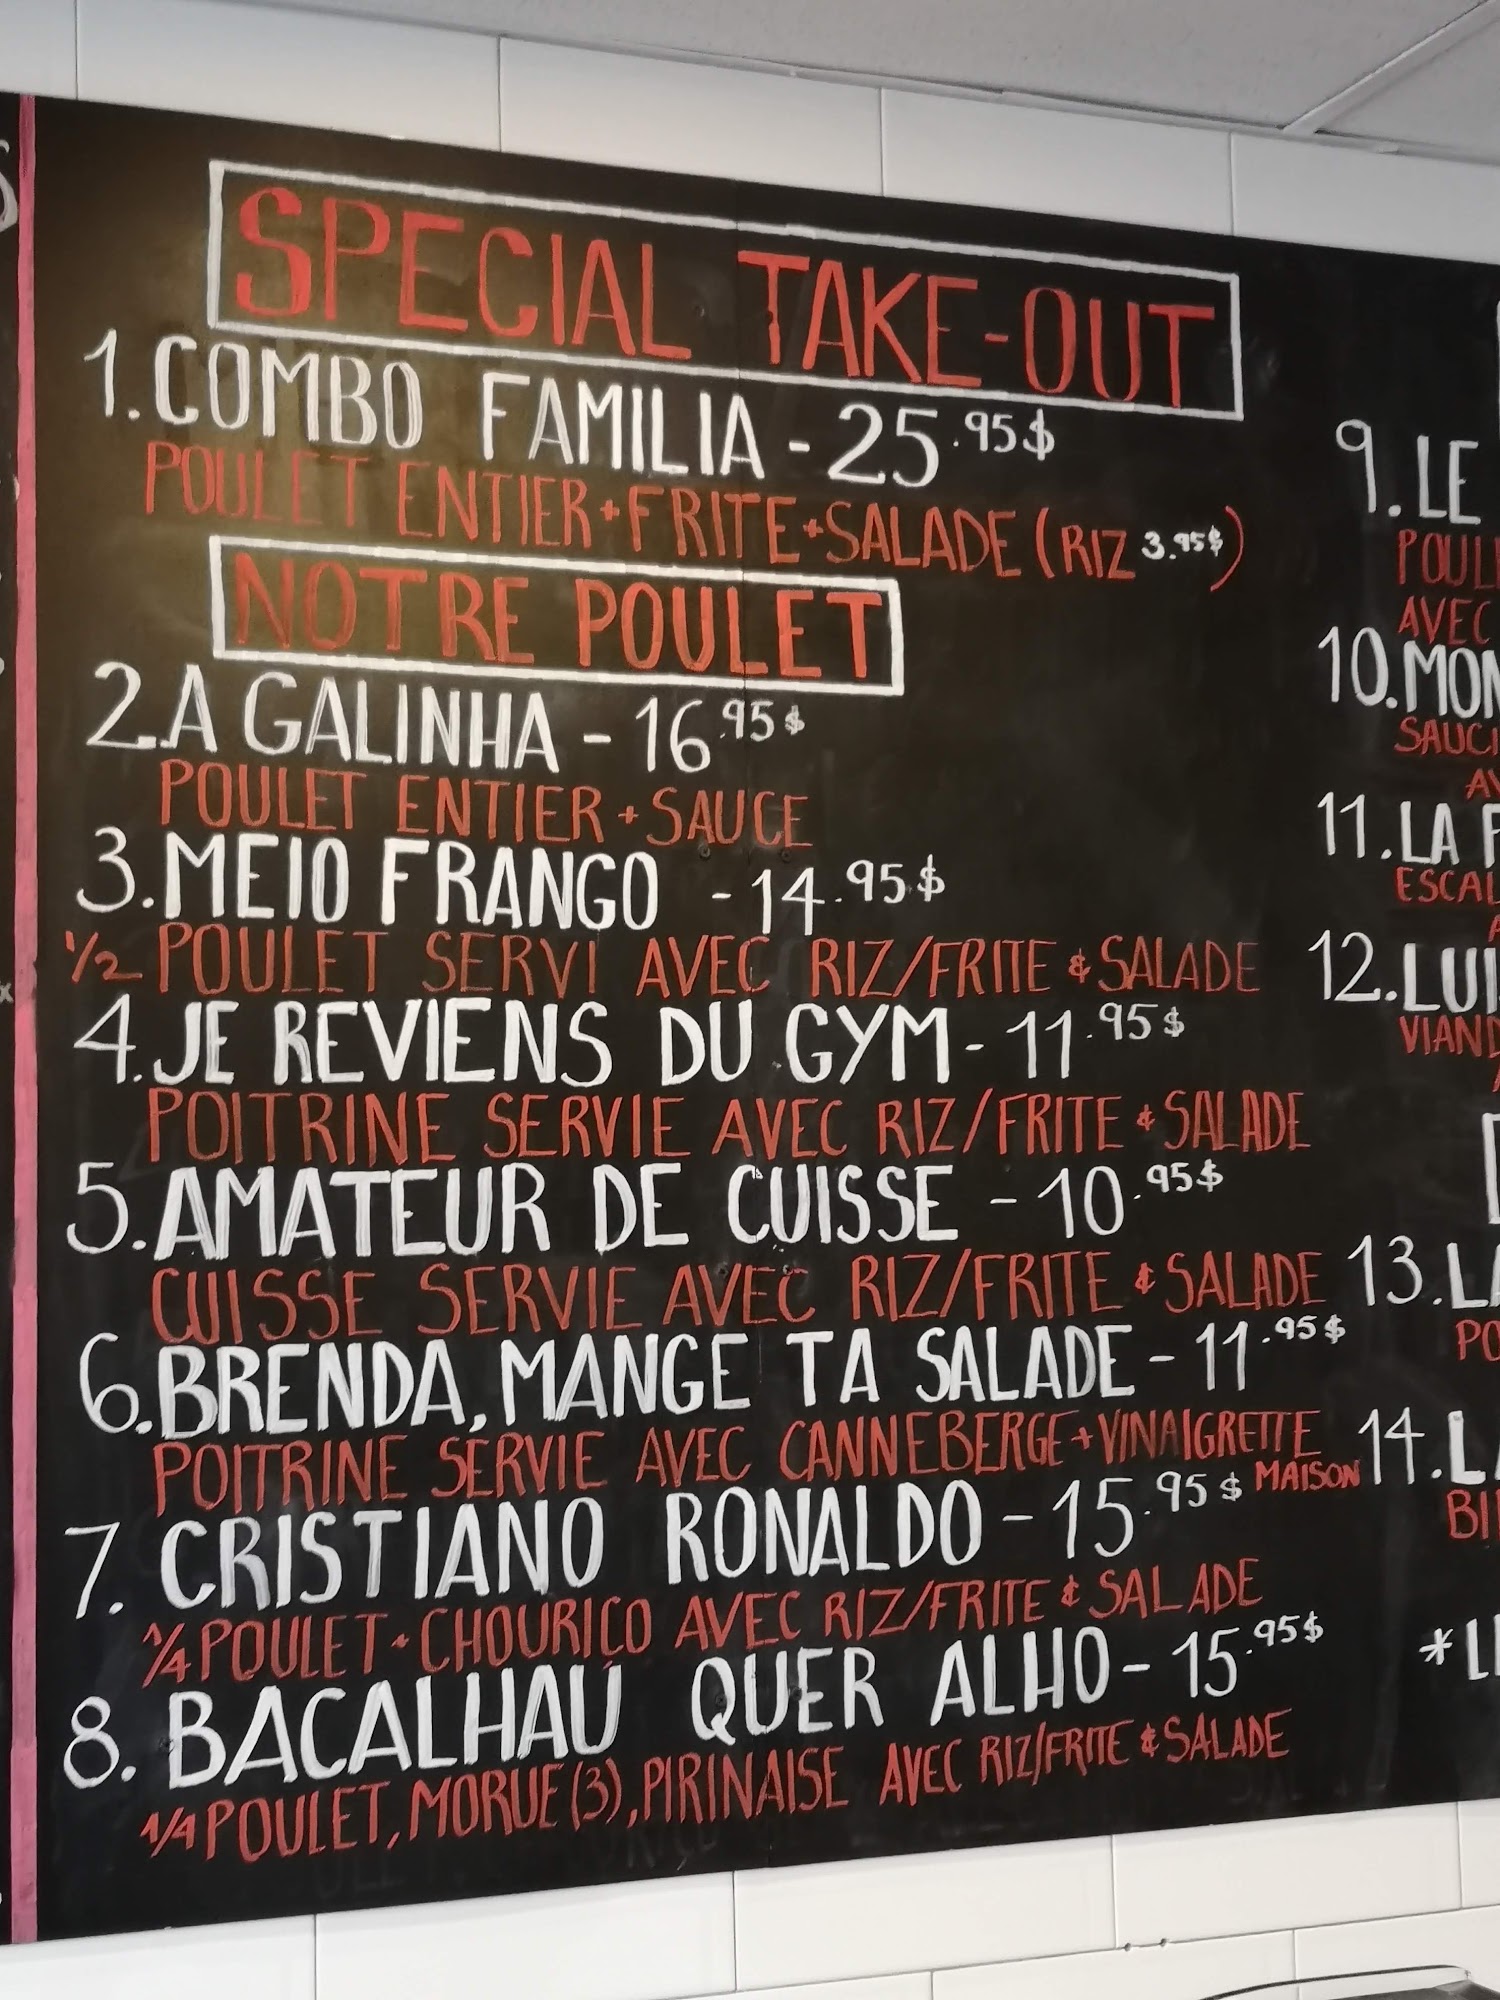 SPECIAL TAKE-OUT
1. COMBO FAMILIA - 25.95$
POULET ENTIER + FRITE + SALADE (RIZ 3.95$)
NOTRE POULET
2. A GALINHA - 16.95$
POULET ENTIER + SAUCE
3. MEIO FRANGO - 14.95$
1/2 POULET SERVI AVEC RIZ/FRITE & SALADE
4. JE REVIENS DU GYM - 11.95$
POITRINE SERVIE AVEC RIZ/FRITE & SALADE
5. AMATEUR DE CUISSE - 10.95$
CUISSE SERVIE AVEC RIZ/FRITE & SALADE
6. BRENDA, MANGE TA SALADE - 11.95$
POITRINE SERVIE AVEC CANNEBERGE + VINAIGRETTE
MAISON
7. CRISTIANO RONALDO - 15.95$
1/4 POULET + CHOURIÇO AVEC RIZ/FRITE & SALADE
8. BACALHAU QUER ALHO - 15.95$
1/4 POULET, MORUE (3), PIRINAISE AVEC RIZ/FRITE & SALADE
9. LE
AVEC
10.
11. LA
12.
13.
14.